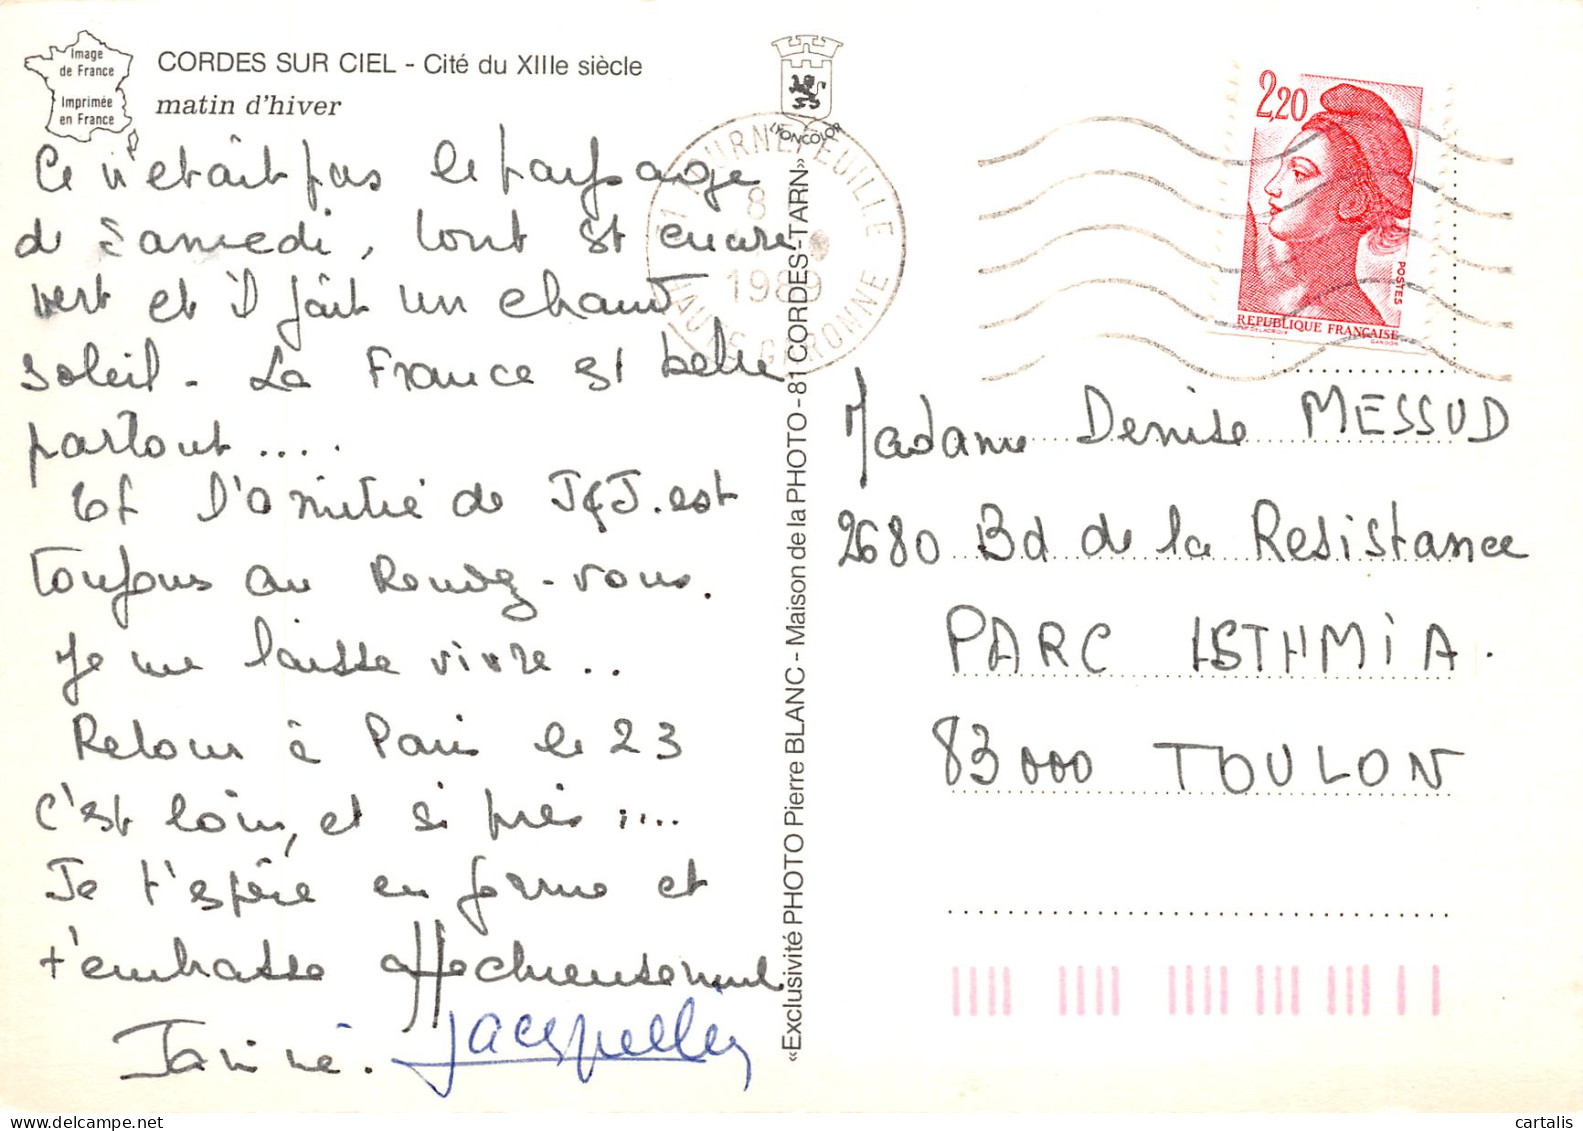 Image
de France
Imprimée
en France
CORDES SUR CIEL - Cité du XIIIe siècle
matin d'hiver
LYONCOLOR
Ce n'était pas le paysage
de samedi, tout est encore
vert et il fait un chaud
soleil - La France est belle
partout ....
Et l'amitié de J&J. est
toujours au Rendez-vous.
Je me laisse vivre..
Retour à Paris le 23
c'est loin, et si près ....
Je t'espère en forme et
t'embrasse affectueusement
Janine. Jacqueline
«Exclusivité PHOTO Pierre BLANC - Maison de la PHOTO - 81 CORDES-TARN»
31 TOURNEFEUILLE
8
1989
HAUTE GARONNE
2,20
POSTES
REPUBLIQUE FRANÇAISE
D'AP DELACROIX
GANDON
Madame Denise MESSUD
2680 Bd de la Resistance
PARC ISTHMIA.
83000 TOULON
cartalis